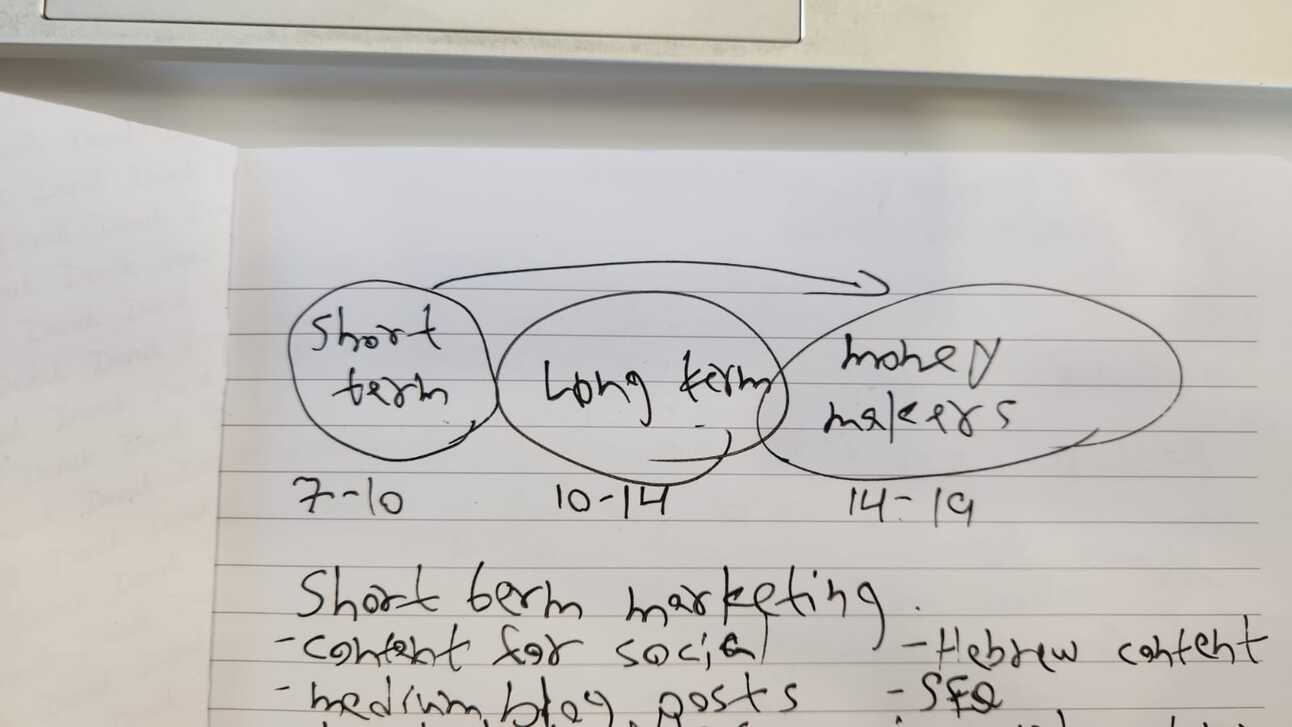 Short
term
Long term
money
makers
7-10
10-14
14-19
Short term marketing.
- content for social
- Hebrew content
- medium, blog posts